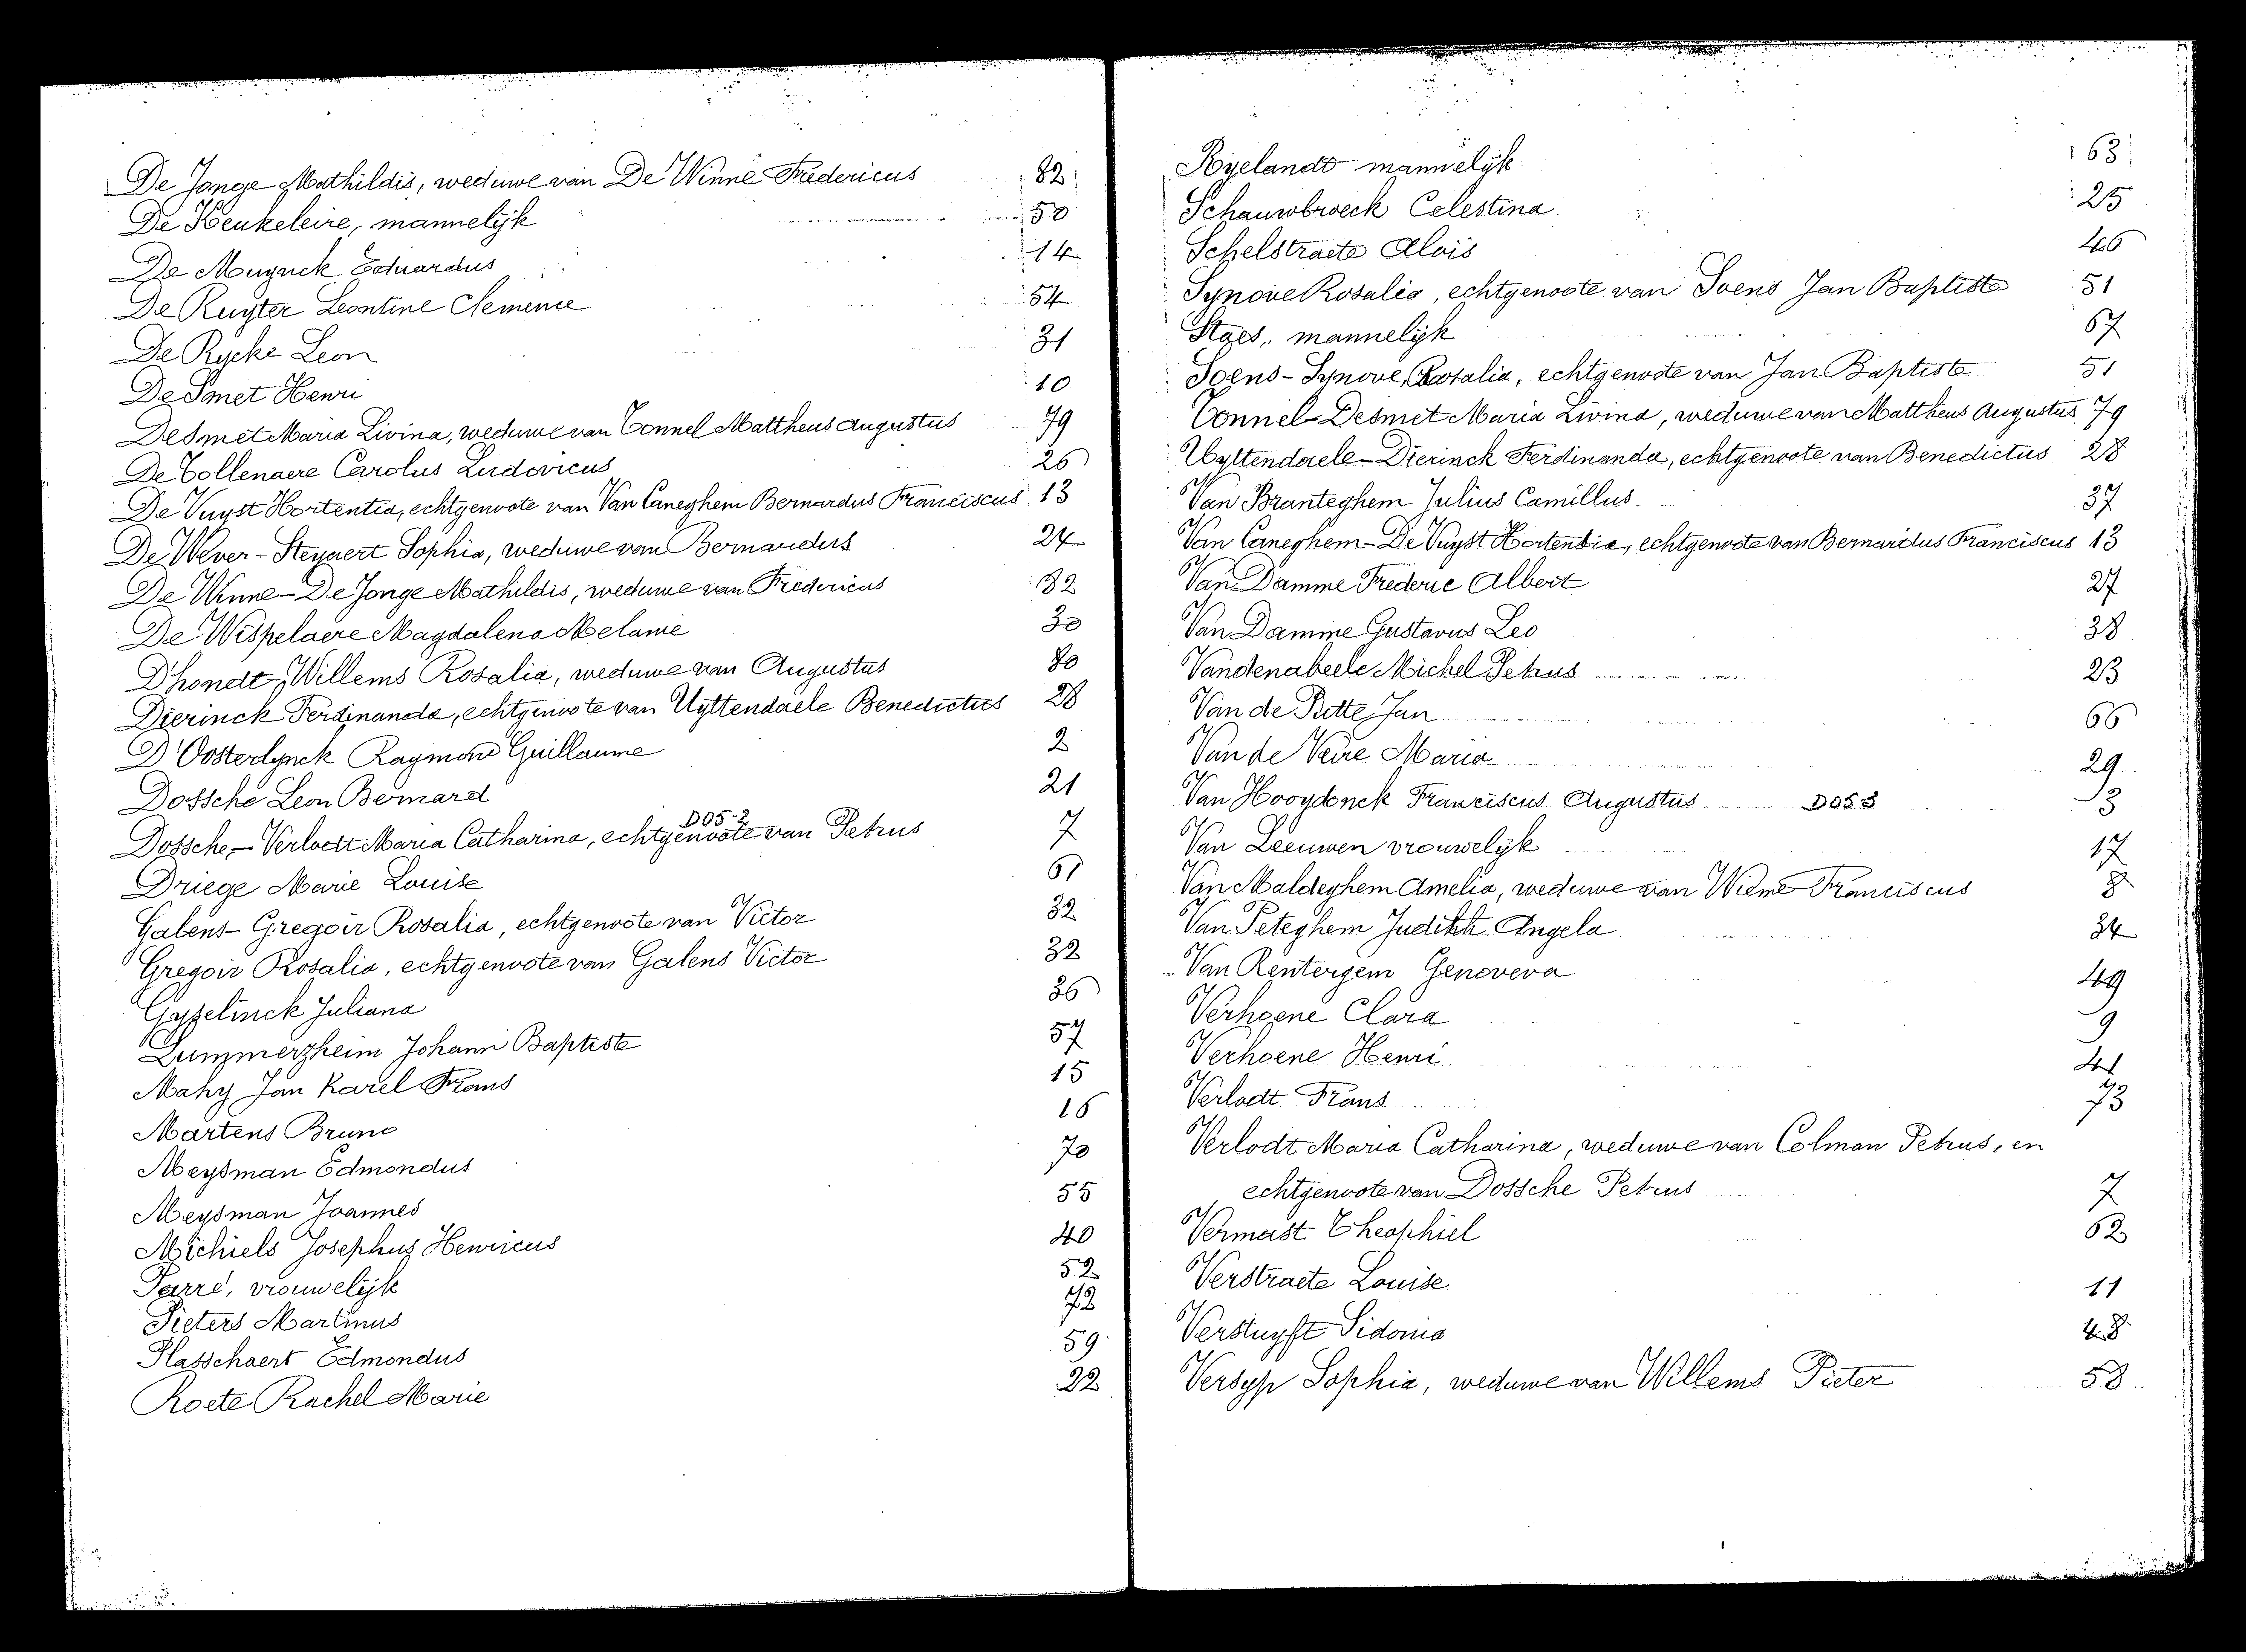 De Jonge Mathildis, weduwe van De Winne Fredericus 82
De Keukeleire, mannelijk 50
De Muynck Eduardus 14
De Ruyter Leontine Clemence 54
De Rycke Leon 31
De Smet Henri 10
Desmet Maria Livina, weduwe van Tonnel Mattheus Augustus 79
De Tollenaere Carolus Ludovicus 26
De Vuyst Hortentia, echtgenoote van Van Caneghem Bernardus Franciscus 13
De Wever - Steyaert Sophia, weduwe van Bernardus 24
De Winne - De Jonge Mathildis, weduwe van Fredericus 82
De Wispelaere Magdalena Melanie 30
D'hondt, Willems Rosalia, weduwe van Augustus 80
Dierinck Ferdinanda, echtgenoote van Uyttendaele Benedictus 28
D'Oosterlynck Raymond Guillaume 2
Dossche Leon Bernard 21
DOS-2
Dossche - Verloett Maria Catharina, echtgenoote van Petrus 7
Driege Marie Louise 61
Galens - Gregoir Rosalia, echtgenoote van Victor 32
Gregoir Rosalia, echtgenoote van Galens Victor 32
Gyselinck Juliana 36
Lummerzheim Johann Baptiste 57
Mahy Jan Karel Frans 15
Martens Bruno 16
Meysman Edmondus 70
Meysman Joannes 55
Michiels Josephus Henricus 40
Parré, vrouwelijk 52
Pieters Martinus 72
Plasschaert Edmondus 59
Roete Rachel Marie 22
Ryelandt mannelijk 63
Schauwbroeck Celestina 25
Schelstraete Alois 46
Synove Rosalia, echtgenoote van Soens Jan Baptiste 51
Staes, mannelijk 67
Soens - Synove, Rosalia, echtgenoote van Jan Baptiste 51
Tonnel - Desmet Maria Livina, weduwe van Mattheus Augustus 79
Uyttendaele - Dierinck Ferdinanda, echtgenoote van Benedictus 28
Van Branteghem Julius Camillus 37
Van Caneghem - De Vuyst Hortentia, echtgenoote van Bernardus Franciscus 13
Van Damme Frederic Albert 27
Van Damme Gustavus Leo 38
Vandenabeele Michel Petrus 23
Van de Putte Jan 66
Van de Veire Maria 29
Van Hooydonck Franciscus Augustus DOS 3 3
Van Leeuwen vrouwelijk 17
Van Maldeghem Amelia, weduwe van Wieme Franciscus 8
Van Peteghem Judith Angela 34
Van Rentergem Genoveva 49
Verhoene Clara 9
Verhoene Henri 41
Verlodt Frans 73
Verlodt Maria Catharina, weduwe van Colman Petrus, en
echtgenoote van Dossche Petrus 7
Vermast Theophiel 62
Verstraete Louise 11
Verstuyft Sidonia 48
Versyp Sophia, weduwe van Willems Pieter 58